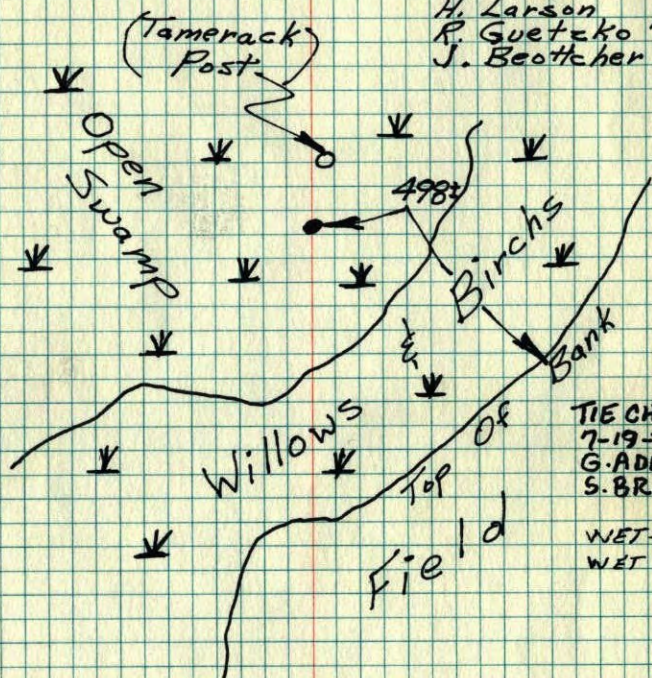 H. Larson
R. Guetzko
J. Beottcher
(Tamerack
Post)
Open
Swamp
498±
Birchs
&
Willows
Top Of Bank
Field
TIE CH
7-19-
G. AD
S. BR
WET-
WET